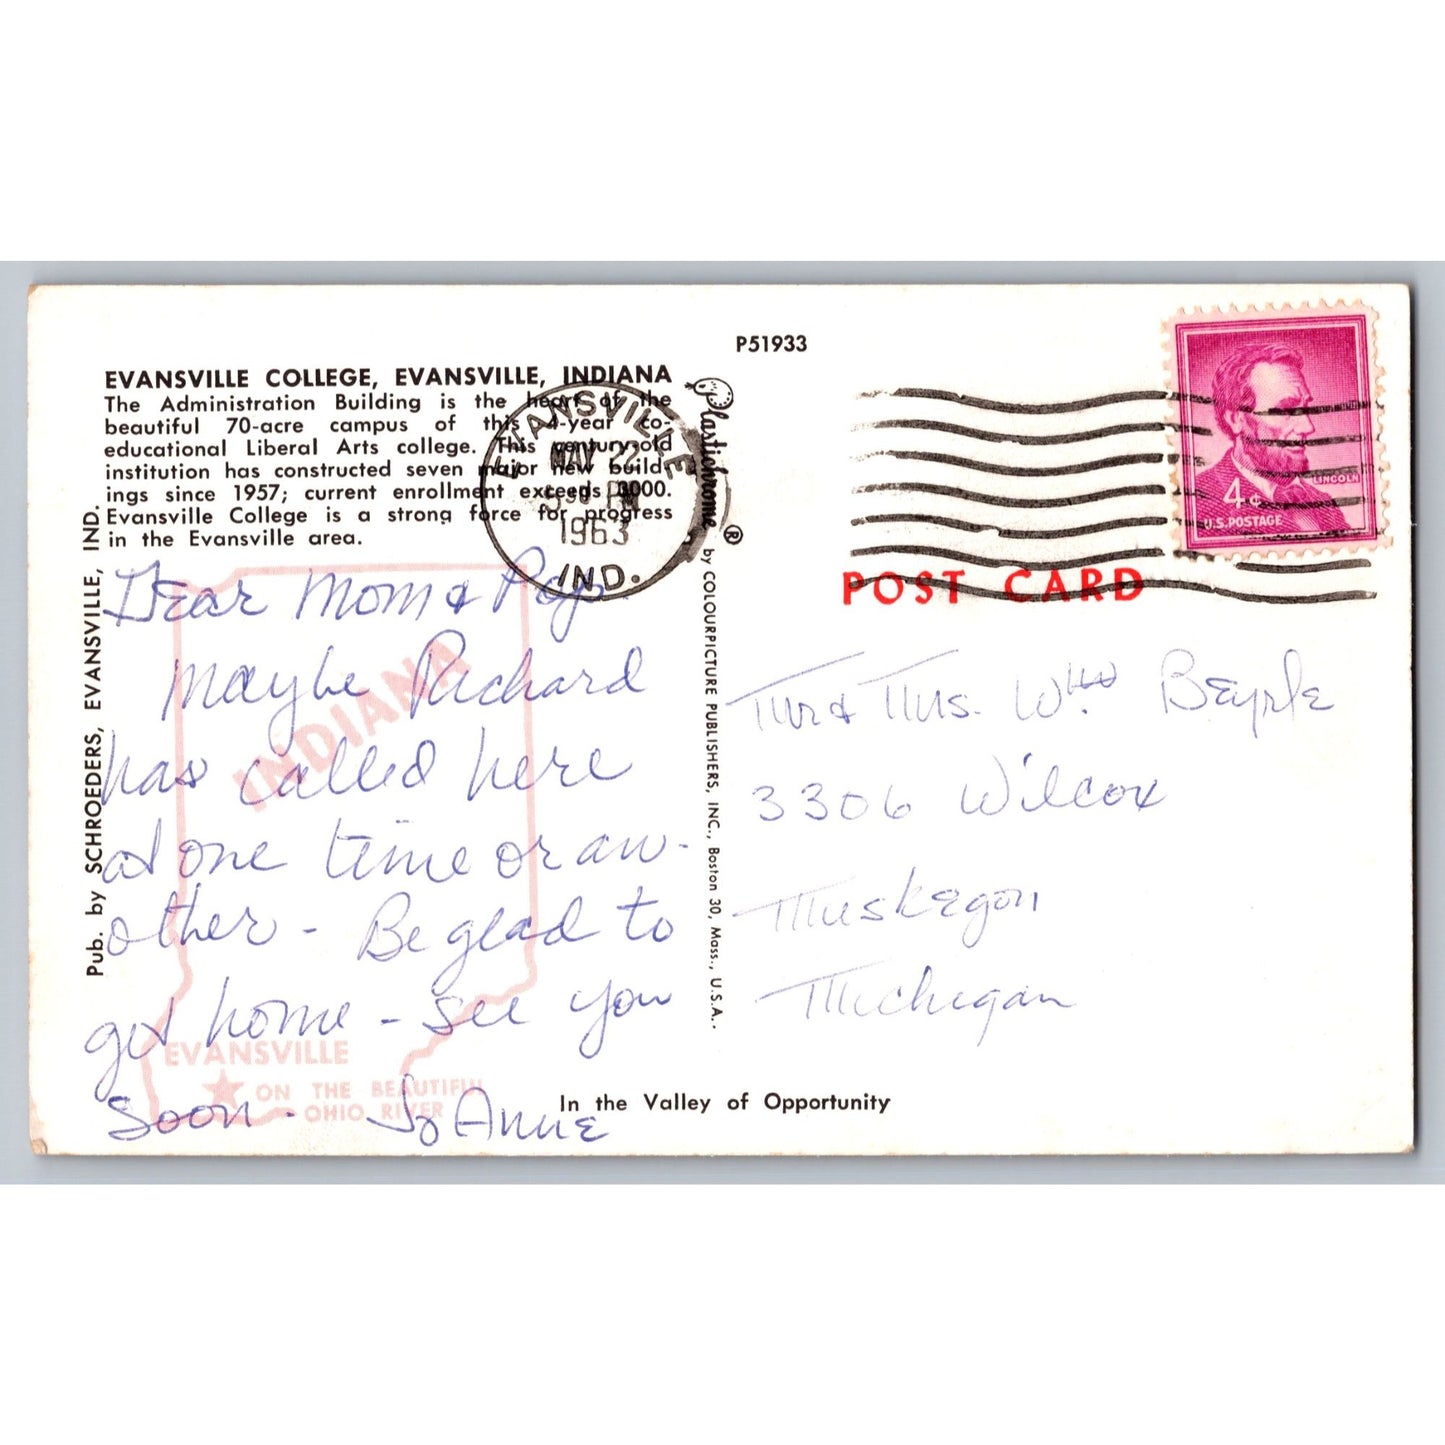 P51933
EVANSVILLE COLLEGE, EVANSVILLE, INDIANA
The Administration Building is the heart of the
beautiful 70-acre campus of this 4-year co-
educational Liberal Arts college. This century-old
institution has constructed seven major new build-
ings since 1957; current enrollment exceeds 3000.
Evansville College is a strong force for progress
in the Evansville area.
EVANSVILLE
MAY 22
5 30 PM
1963
IND.
Pub. by SCHROEDERS, EVANSVILLE, IND.
Plastichrome ® by COLOURPICTURE PUBLISHERS, INC., Boston 30, Mass., U.S.A.
LINCOLN
4¢
U.S. POSTAGE
POST CARD
Dear Mom & Pop
Maybe Richard
has called here
at one time or an-
other - Be glad to
get home - see you
soon - Jo Anne
INDIANA
EVANSVILLE
ON THE BEAUTIFUL
OHIO RIVER
Mr & Mrs. Wm Beyrle
3306 Wilcox
Muskegon
Michigan
In the Valley of Opportunity